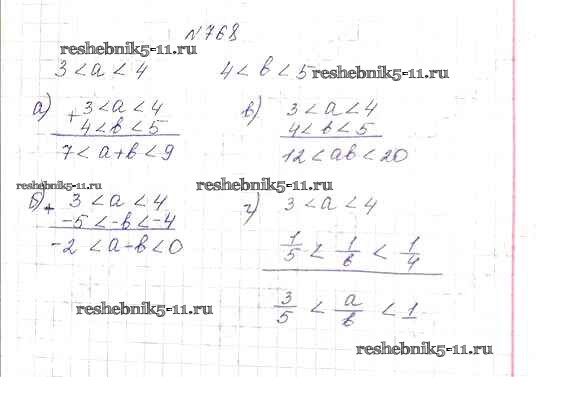 №768
reshebnik5-11.ru
3 < a < 4 4 < b < 5 reshebnik5-11.ru
а) + 3 < a < 4
4 < b < 5
7 < a + b < 9
в) 3 < a < 4
4 < b < 5
12 < ab < 20
reshebnik5-11.ru reshebnik5-11.ru
б) + 3 < a < 4
-5 < -b < -4
-2 < a - b < 0
г) 3 < a < 4
1/5 < 1/b < 1/4
3/5 < a/b < 1
reshebnik5-11.ru
reshebnik5-11.ru